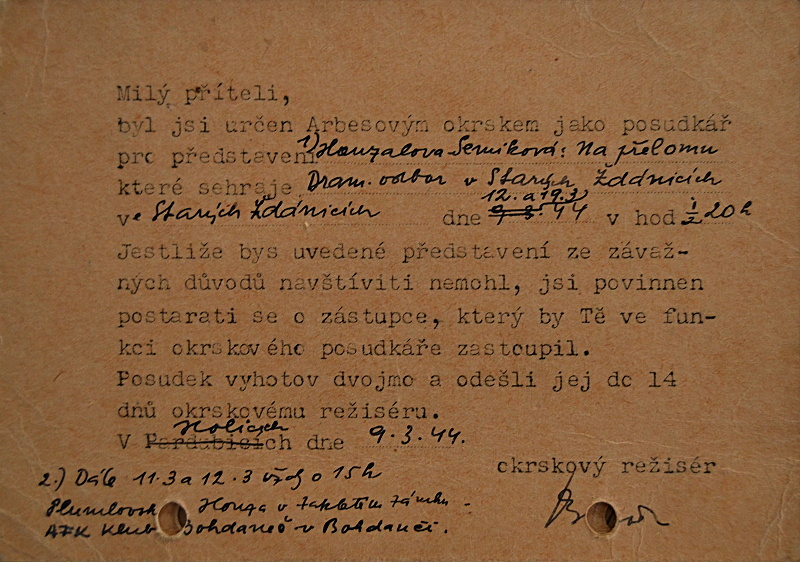 Milý příteli,
byl jsi určen Arbesovým okrskem jako posudkář
pro představení 1) Honzalova-Semíková: Na přelomu
které sehraje Dram. odbor v Starých Ždánicích
ve Starých Ždánicích dne 12. a 19.3. 44 v hod ½20 h
Jestliže bys uvedené představení ze závaž-
ných důvodů navštíviti nemohl, jsi povinnen
postarati se o zástupce, který by Tě ve fun-
kci okrskového posudkáře zastoupil.
Posudek vyhotov dvojmo a odešli jej do 14
dnů okrskovému režiséru.
V Holicích dne 9.3.44.
okrskový režisér
2.) Dále 11.3 a 12.3 vždy o 15h
Honza v zakletém zámku -
AFK Klub Bohdaneč v Bohdanči.